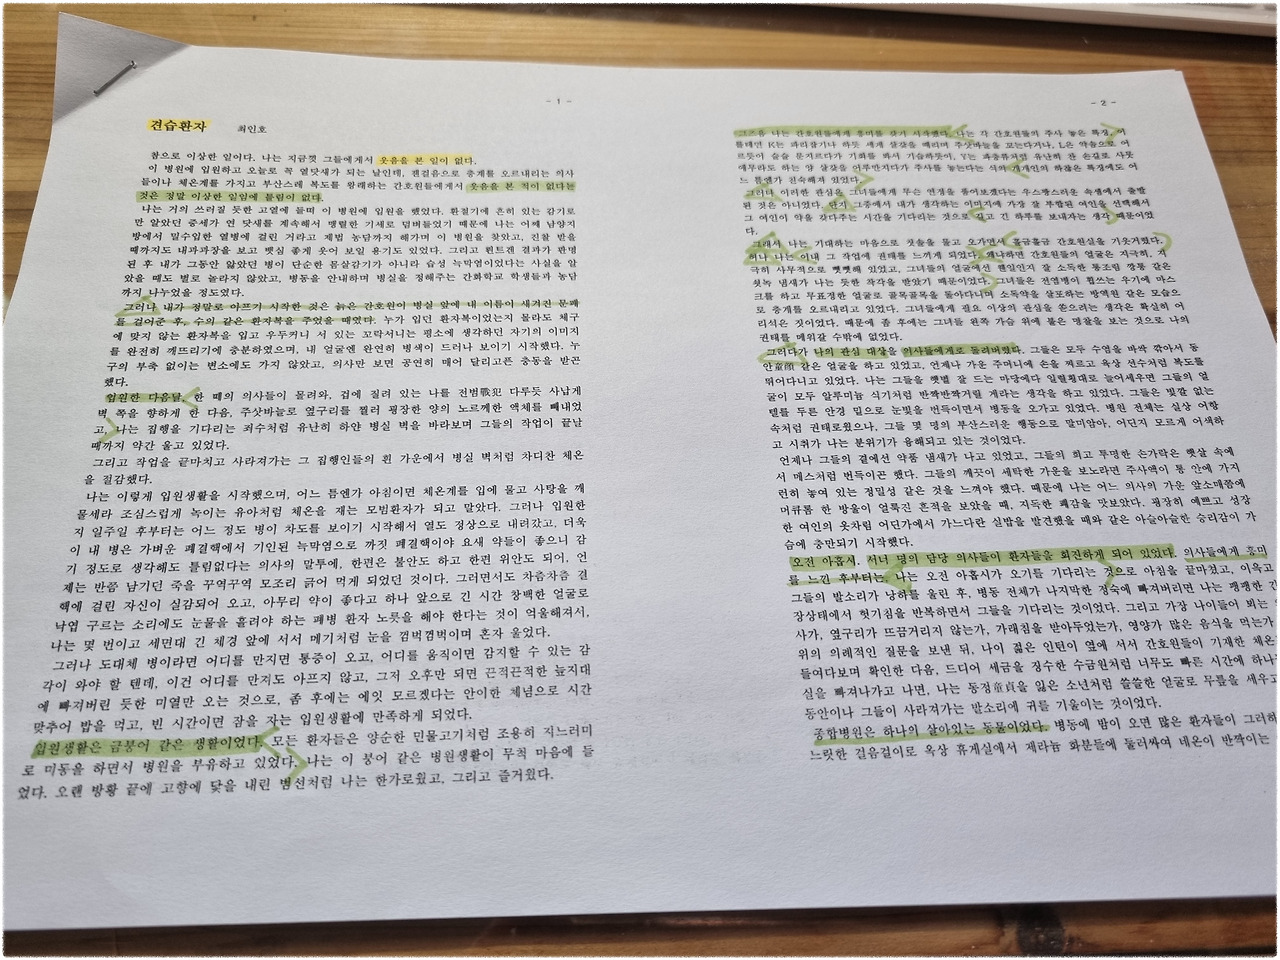 - 1 -
견습환자 최인호
참으로 이상한 일이다. 나는 지금껏 그들에게서 웃음을 본 일이 없다.
이 병원에 입원하고 오늘로 꼭 열닷새가 되는 날인데, 잰걸음으로 층계를 오르내리는 의사
들이나 체온계를 가지고 부산스레 복도를 왕래하는 간호원들에게서 웃음을 본 적이 없다는
것은 정말 이상한 일임에 틀림이 없다.
나는 거의 쓰러질 듯한 고열에 들떠 이 병원에 입원을 했었다. 환절기에 흔히 있는 감기로
만 알았던 증세가 연 닷새를 계속해서 맹렬한 기세로 덤벼들었기 때문에 나는 어쩌 남양지
방에서 밀수입한 열병에 걸린 거라고 제법 농담까지 해가며 이 병원을 찾았고, 진찰 받을
때까지도 내과과장을 보고 뱃심 좋게 웃어 보일 용기도 있었다. 그리고 뢴트겐 결과가 판명
된 후 내가 그동안 앓았던 병이 단순한 몸살감기가 아니라 습성 늑막염이었다는 사실을 알
았을 때도 별로 놀라지 않았고, 병동을 안내하며 병실을 정해주는 간화학교 학생들과 농담
까지 나누었을 정도였다.
그러나 내가 정말로 아프기 시작한 것은 늙은 간호원이 병실 앞에 내 이름이 새겨진 문패
를 걸어준 후, 수의 같은 환자복을 주었을 때였다. 누가 입던 환자복이었는지 몰라도 체구
에 맞지 않는 환자복을 입고 우두커니 서 있는 꼬락서니는 평소에 생각하던 자기의 이미지
를 완전히 깨뜨리기에 충분하였으며, 내 얼굴엔 완연히 병색이 드러나 보이기 시작했다. 누
구의 부축 없이는 변소에도 가지 않았고, 의사만 보면 공연히 매어 달리고픈 충동을 받곤
했다.
입원한 다음날, 한 떼의 의사들이 몰려와, 겁에 질려 있는 나를 전범戰犯 다루듯 사납게
벽 쪽을 향하게 한 다음, 주삿바늘로 옆구리를 찔러 굉장한 양의 노르께한 액체를 빼내었
고, 나는 집행을 기다리는 죄수처럼 유난히 하얀 병실 벽을 바라보며 그들의 작업이 끝날
때까지 약간 울고 있었다.
그리고 작업을 끝마치고 사라져가는 그 집행인들의 흰 가운에서 병실 벽처럼 차디찬 체온
을 절감했다.
나는 이렇게 입원생활을 시작했으며, 어느 틈엔가 아침이면 체온계를 입에 물고 사탕을 깨
물세라 조심스럽게 녹이는 유아처럼 체온을 재는 모범환자가 되고 말았다. 그러나 입원한
지 일주일 후부터는 어느 정도 병이 차도를 보이기 시작해서 열도 정상으로 내려갔고, 더욱
이 내 병은 가벼운 폐결핵에서 기인된 늑막염으로 까짓 폐결핵이야 요새 약들이 좋으니 감
기 정도로 생각해도 틀림없다는 의사의 말투에, 한편은 불안도 하고 한편 위안도 되어, 언
제는 반쯤 남기던 죽을 꾸역꾸역 모조리 긁어 먹게 되었던 것이다. 그러면서도 차츰차츰 결
핵에 걸린 자신이 실감되어 오고, 아무리 약이 좋다고 하나 앞으로 긴 시간 창백한 얼굴로
낙엽 구르는 소리에도 눈물을 흘려야 하는 폐병 환자 노릇을 해야 한다는 것이 억울해져서,
나는 몇 번이고 세면대 긴 체경 앞에 서서 메기처럼 눈을 껌벅껌벅이며 혼자 울었다.
그러나 도대체 병이라면 어디를 만지면 통증이 오고, 어디를 움직이면 감지할 수 있는 감
각이 와야 할 텐데, 이건 어디를 만져도 아프지 않고, 그저 오후만 되면 끈적끈적한 늪지대
에 빠져버린 듯한 미열만 오는 것으로, 좀 후에는 에잇 모르겠다는 안이한 체념으로 시간
맞추어 밥을 먹고, 빈 시간이면 잠을 자는 입원생활에 만족하게 되었다.
입원생활은 금붕어 같은 생활이었다. 모든 환자들은 양순한 민물고기처럼 조용히 지느러미
로 미동을 하면서 병원을 부유하고 있었다. 나는 이 붕어 같은 병원생활이 무척 마음에 들
었다. 오랜 방황 끝에 고향에 닻을 내린 범선처럼 나는 한가로웠고, 그리고 즐거웠다.
- 2 -
그즈음 나는 간호원들에게 흥미를 갖기 시작했다. 나는 각 간호원들의 주사 놓은 특징, 이
를테면 K는 파리잡기나 하듯 세게 살갗을 때리며 주삿바늘을 꽂는다거나, L은 약솜으로 어
르듯이 슬슬 문지르다가 기회를 봐서 기습하듯이, Y는 파충류처럼 유난히 찬 손길로 사뭇
애무라도 하는 양 살갗을 어루만지다가 주사를 놓는다는 식의 개개인의 하찮은 특징에도 어
느 틈엔가 친숙해져 있었다.
그러나 이러한 관심은 그녀들에게 무슨 연정을 품어보겠다는 우스꽝스러운 속셈에서 출발
된 것은 아니었다. 단지 그중에서 내가 생각하는 이미지에 가장 잘 부합된 여인을 선택해서
그 여인이 약을 갖다주는 시간을 기다리는 것으로 길고 긴 하루를 보내자는 생각 때문이었
다.
그래서 나는 기대하는 마음으로 칫솔을 물고 오가면서 흘금흘금 간호원실을 기웃거렸다.
허나 나는 이내 그 작업에 권태를 느끼게 되었다. 왜냐하면 간호원들의 얼굴은 지극히, 지
극히 사무적으로 뻣뻣해 있었고, 그녀들의 얼굴에선 웬일인지 잘 소독한 통조림 깡통 같은
쇳녹 냄새가 나는 듯한 착각을 받았기 때문이었다. 그녀들은 전염병이 휩쓰는 우기에 마스
크를 하고 무표정한 얼굴로 골목골목을 돌아다니며 소독약을 살포하는 방역원 같은 모습으
로 층계를 오르내리고 있었다. 그녀들에게 필요 이상의 관심을 쏟으려는 생각은 확실히 어
리석은 짓이었다. 때문에 좀 후에는 그녀들 왼쪽 가슴 위에 붙은 명찰을 보는 것으로 나의
권태를 메워갈 수밖에 없었다.
그러다가 나의 관심 대상을 의사들에게로 돌려버렸다. 그들은 모두 수염을 바싹 깎아서 동
안童顔 같은 얼굴을 하고 있었고, 언제나 가운 주머니에 손을 찌르고 육상 선수처럼 복도를
뛰어다니고 있었다. 나는 그들을 햇볕 잘 드는 마당에다 일렬횡대로 늘어세우면 그들의 얼
굴이 모두 알루미늄 식기처럼 반짝반짝거릴 게라는 생각을 하고 있었다. 그들은 빛깔 없는
텔를 두른 안경 밑으로 눈빛을 번득이면서 병동을 오가고 있었다. 병원 전체는 실상 어항
속처럼 권태로웠으나, 그들 몇 명의 부산스러운 행동으로 말미암아, 어딘지 모르게 어색하
고 시취가 나는 분위기가 융해되고 있는 것이었다.
언제나 그들의 곁에선 약품 냄새가 나고 있었고, 그들의 희고 투명한 손가락은 햇살 속에
서 메스처럼 번득이곤 했다. 그들의 깨끗이 세탁한 가운을 보노라면 주사액이 통 안에 가지
런히 놓여 있는 정밀성 같은 것을 느껴야 했다. 때문에 나는 어느 의사의 가운 앞소매쯤에
머큐롬 한 방울이 얼룩진 흔적을 보았을 때, 지독한 쾌감을 맛보았다. 굉장히 예쁘고 성장
한 여인의 옷차림 어딘가에서 가느다란 실밥을 발견했을 때와 같은 아슬아슬한 승리감이 가
슴에 충만되기 시작했다.
오전 아홉시. 서너 명의 담당 의사들이 환자들을 회진하게 되어 있었다. 의사들에게 흥미
를 느낀 후부터는, 나는 오전 아홉시가 오기를 기다리는 것으로 아침을 끝마쳤고, 이윽고
그들의 발소리가 낭하를 울린 후, 병동 전체가 나지막한 정숙에 빠져버리면 나는 팽팽한 긴
장상태에서 헛기침을 반복하면서 그들을 기다리는 것이었다. 그리고 가장 나이들어 뵈는
사가, 옆구리가 뜨끔거리지 않는가, 가래침을 받아두었는가, 영양가 많은 음식을 먹는가
위의 의례적인 질문을 보낸 뒤, 나이 젊은 인턴이 옆에 서서 간호원들이 기재한 체온
들여다보며 확인한 다음, 드디어 세금을 정수한 수금원처럼 너무도 빠른 시간에 하나
실을 빠져나가고 나면, 나는 동정童貞을 잃은 소년처럼 쓸쓸한 얼굴로 무릎을 세우고
동안이나 그들이 사라져가는 발소리에 귀를 기울이는 것이었다.
종합병원은 하나의 살아있는 동물이었다. 병동에 밤이 오면 많은 환자들이 그러하
느릿한 걸음걸이로 옥상 휴게실에서 제라늄 화분들에 둘러싸여 네온이 반짝이는